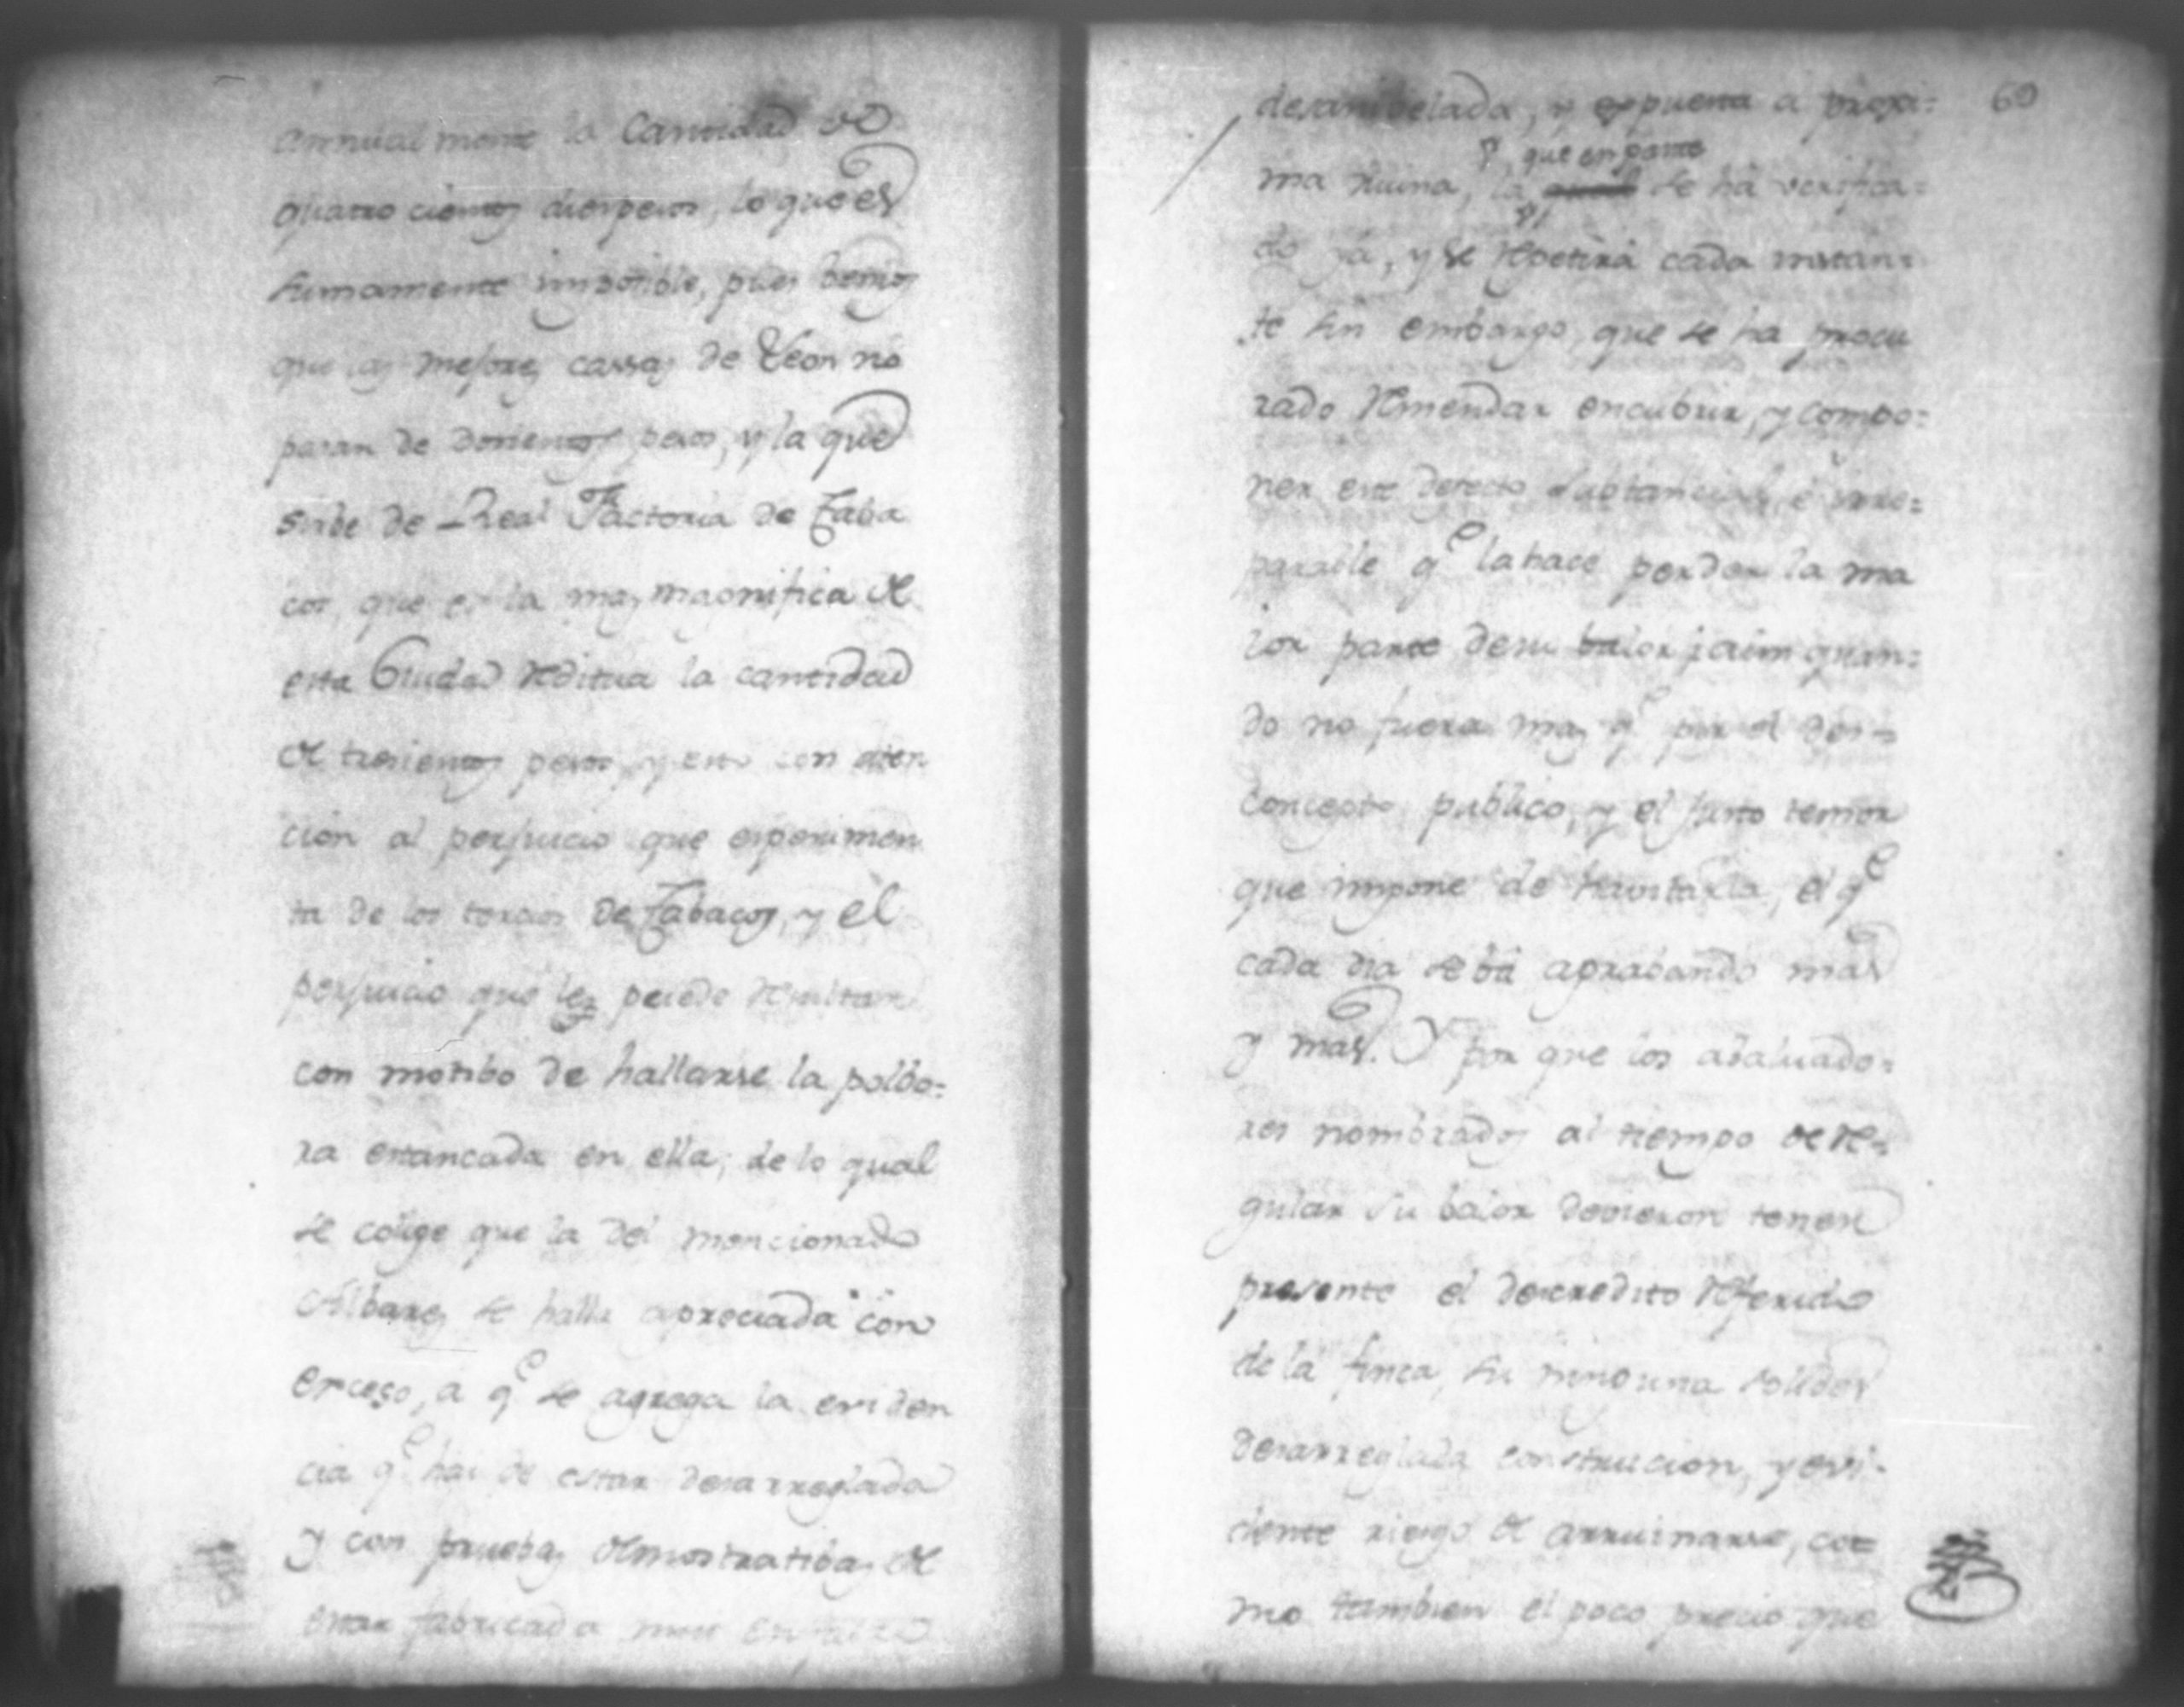 annualmente la Cantidad de
quatro cientos dies pesos, lo que es
sumamente imposible, pues bemos
que las mejores cassas de Leon no
pasan de dosientos pesos, y la que
sirbe de Real Factoria de Taba
cos, que es la mas magnifica de
esta Ciudad reditua la cantidad
de tresientos pesos, y esto con aten
cion al perjuicio que esperimen
ta de los tercios de Tabacos, y el
perjuicio que les puede resultar
con motibo de hallarse la polbo=
ra estancada en ella; de lo qual
se colige que la del mencionado
Albares se halla apreciada con
exceso, a q.e se agrega la eviden
cia q.e hai de estar desarreglada
y con pruebas demostratibas de
estar fabricada mui en falso
60
desanibelada, y expuesta a proxi=
ma ruina, la se ha verifica=
que en parte
do ya, y se repetirá cada instan=
te sin embargo, que se ha procu
rado remendar encubrir, y compo=
ner este defecto substancial, é irre=
parable q.e la hace perder la ma
ior parte de su balor; aun quan=
do no fuera mas q.e por el des=
concepto publico, y el justo temor
que impone de havitarla, el q.e
cada dia se bá agrabando mas
y mas. Y por que los abaluado=
res nombrados al tiempo de re=
gular su balor devieron tener
presente el descredito referido
de la finca, su ninguna solides
desarreglada construcion, y evi=
dente riesgo de arruinarse, co=
mo tambien el poco precio que